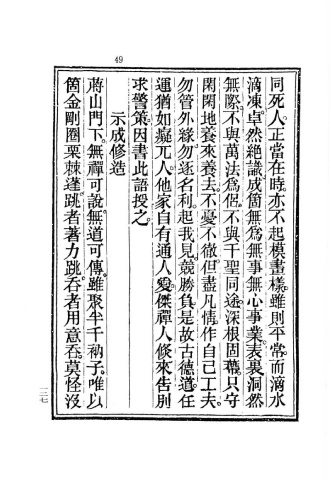 49
同死人。正當在時。亦不起模畫樣。雖則平常。而滴水
滴凍。卓然絶識。成箇無為無事無心事業。表裏洞然
無際。不與萬法為侶。不與千聖同途。深根固蔕。只守
閑閑地。養來養去。不憂不徹。但盡凡情。作自己工夫。
勿管外緣。勿逐名利。起我見。競勝負。是故古德道。任
運猶如癡兀人。他家自有通人愛。傑禪人倐來告別
求警策。因書此語授之。
示成修造
蔣山門下。無禪可說。無道可傳。雖聚半千衲子。唯以
箇金剛圈栗棘蓬。跳者著力跳。吞者用意吞。莫怪沒
一二七